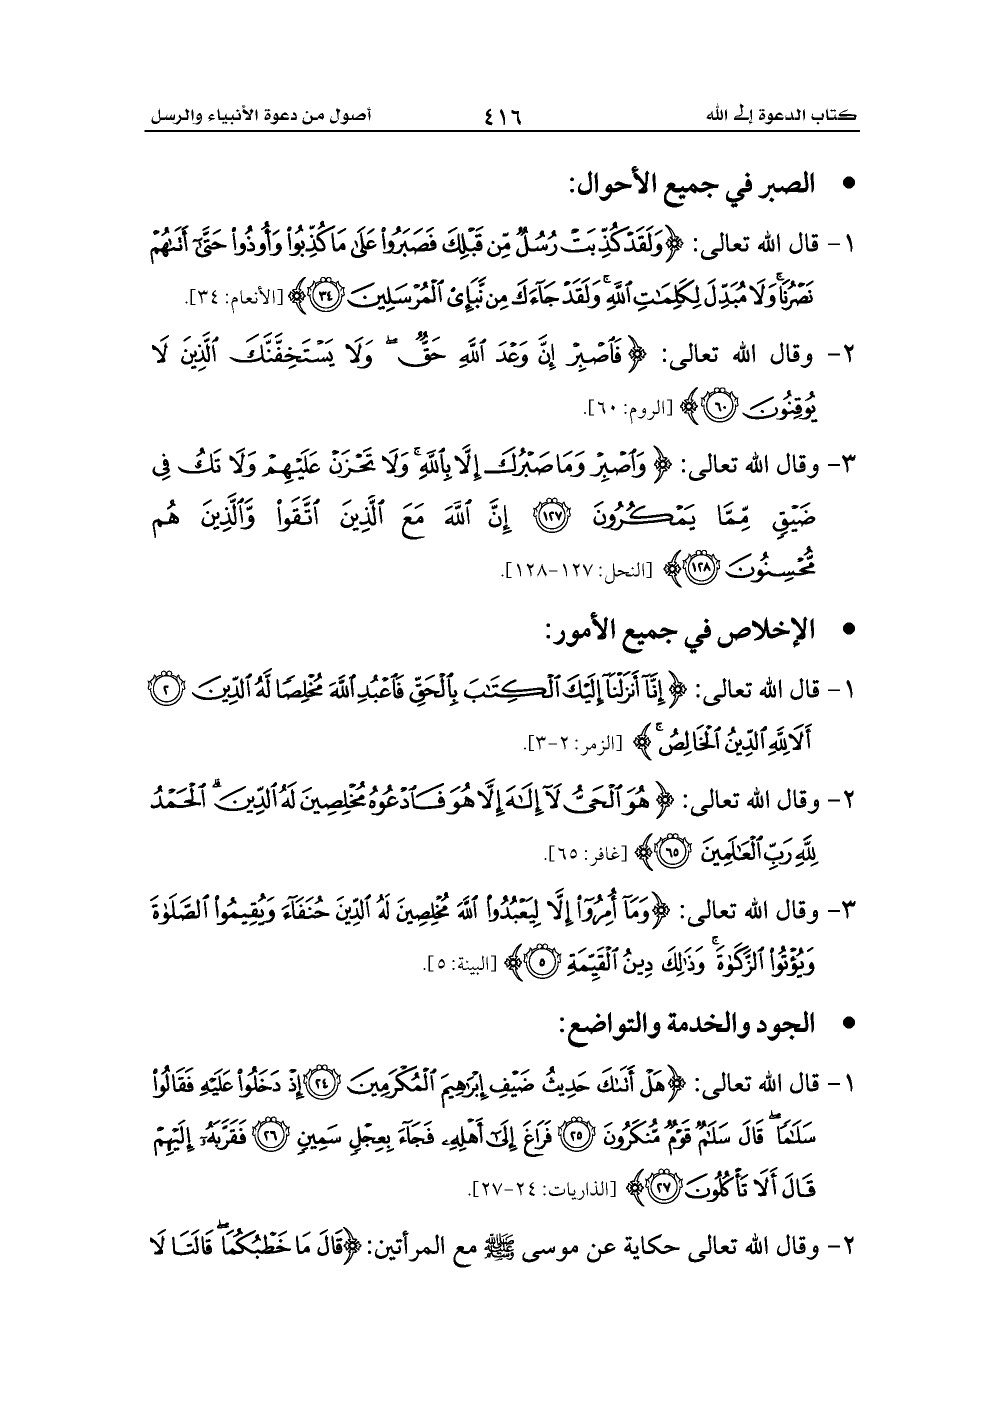 كتاب الدعوة إلى الله ٤١٦ أصول من دعوة الأنبياء والرسل
• الصبر في جميع الأحوال:
١- قال الله تعالى: ﴿وَلَقَدْ كُذِّبَتْ رُسُلٌ مِّن قَبْلِكَ فَصَبَرُوا۟ عَلَىٰ مَا كُذِّبُوا۟ وَأُوذُوا۟ حَتَّىٰٓ أَتَىٰهُمْ
نَصْرُنَا ۚ وَلَا مُبَدِّلَ لِكَلِمَـٰتِ ٱللَّهِ ۚ وَلَقَدْ جَآءَكَ مِن نَّبَإِى۟ ٱلْمُرْسَلِينَ ٣٤﴾ [الأنعام: ٣٤].
٢- وقال الله تعالى: ﴿فَٱصْبِرْ إِنَّ وَعْدَ ٱللَّهِ حَقٌّ ۖ وَلَا يَسْتَخِفَّنَّكَ ٱلَّذِينَ لَا
يُوقِنُونَ ٦٠﴾ [الروم: ٦٠].
٣- وقال الله تعالى: ﴿وَٱصْبِرْ وَمَا صَبْرُكَ إِلَّا بِٱللَّهِ ۚ وَلَا تَحْزَنْ عَلَيْهِمْ وَلَا تَكُ فِى
ضَيْقٍ مِّمَّا يَمْكُرُونَ ١٢٧ إِنَّ ٱللَّهَ مَعَ ٱلَّذِينَ ٱتَّقَوا۟ وَّٱلَّذِينَ هُم
مُّحْسِنُونَ ١٢٨﴾ [النحل: ١٢٧-١٢٨].
• الإخلاص في جميع الأمور:
١- قال الله تعالى: ﴿إِنَّآ أَنزَلْنَآ إِلَيْكَ ٱلْكِتَـٰبَ بِٱلْحَقِّ فَٱعْبُدِ ٱللَّهَ مُخْلِصًا لَّهُ ٱلدِّينَ ٢
أَلَا لِلَّهِ ٱلدِّينُ ٱلْخَالِصُ ۚ﴾ [الزمر: ٢-٣].
٢- وقال الله تعالى: ﴿هُوَ ٱلْحَىُّ لَآ إِلَـٰهَ إِلَّا هُوَ فَٱدْعُوهُ مُخْلِصِينَ لَهُ ٱلدِّينَ ۗ ٱلْحَمْدُ
لِلَّهِ رَبِّ ٱلْعَـٰلَمِينَ ٦٥﴾ [غافر: ٦٥].
٣- وقال الله تعالى: ﴿وَمَآ أُمِرُوٓا۟ إِلَّا لِيَعْبُدُوا۟ ٱللَّهَ مُخْلِصِينَ لَهُ ٱلدِّينَ حُنَفَآءَ وَيُقِيمُوا۟ ٱلصَّلَوٰةَ
وَيُؤْتُوا۟ ٱلزَّكَوٰةَ ۚ وَذَٰلِكَ دِينُ ٱلْقَيِّمَةِ ٥﴾ [البينة: ٥].
• الجود والخدمة والتواضع:
١- قال الله تعالى: ﴿هَلْ أَتَىٰكَ حَدِيثُ ضَيْفِ إِبْرَٰهِيمَ ٱلْمُكْرَمِينَ ٢٤ إِذْ دَخَلُوا۟ عَلَيْهِ فَقَالُوا۟
سَلَـٰمًا ۖ قَالَ سَلَـٰمٌ قَوْمٌ مُّنكَرُونَ ٢٥ فَرَاغَ إِلَىٰٓ أَهْلِهِۦ فَجَآءَ بِعِجْلٍ سَمِينٍ ٢٦ فَقَرَّبَهُۥٓ إِلَيْهِمْ
قَالَ أَلَا تَأْكُلُونَ ٢٧﴾ [الذاريات: ٢٤-٢٧].
٢- وقال الله تعالى حكاية عن موسى ﷺ مع المرأتين: ﴿قَالَ مَا خَطْبُكُمَا ۖ قَالَتَا لَا